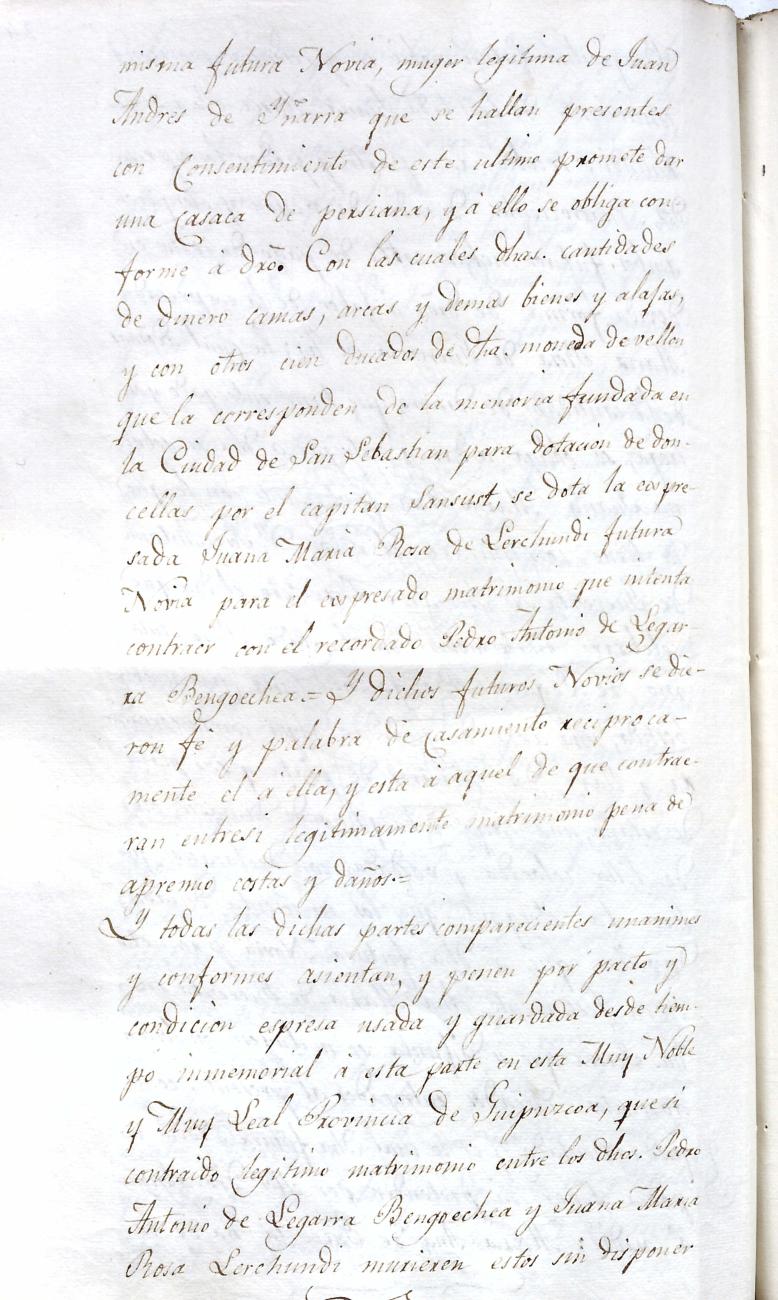 misma futura Novia, muger legitima de Juan
Andres de Yñarra que se hallan presentes
con Consentimiento de este ultimo promete dar
una Casaca de persiana, y á ello se obliga con-
forme á dro. Con las cuales dhas. cantidades
de dinero camas, arcas y demas bienes y alajas,
y con otros cien ducados de dha. moneda de vellon
que la corresponden de la memoria fundada en
la Ciudad de San Sebastian para dotacion de don-
cellas por el capitan Sansust, se dota la expre-
sada Juana Maria Rosa de Lerchundi futura
Novia para el expresado matrimonio que intenta
contraer con el recordado Pedro Antonio de Legar-
ra Bengoechea.= Y dichos futuros Novios se die-
ron fé y palabra de casamiento reciproca-
mente el á ella, y esta á aquel de que contrae-
ran entresi legitimamente matrimonio pena de
apremio costas y daños.=
Y todas las dichas partes comparecientes unanimes
y conformes asientan, y ponen por pacto y
condicion espresa usada y guardada desde tiem-
po inmemorial á esta parte en esta Muy Noble
y Muy Leal Provincia de Guipuzcoa, que si
contraido legitimo matrimonio entre los dhos. Pedro
Antonio de Legarra Bengoechea y Juana Maria
Rosa Lerchundi murieren estos sin disponer